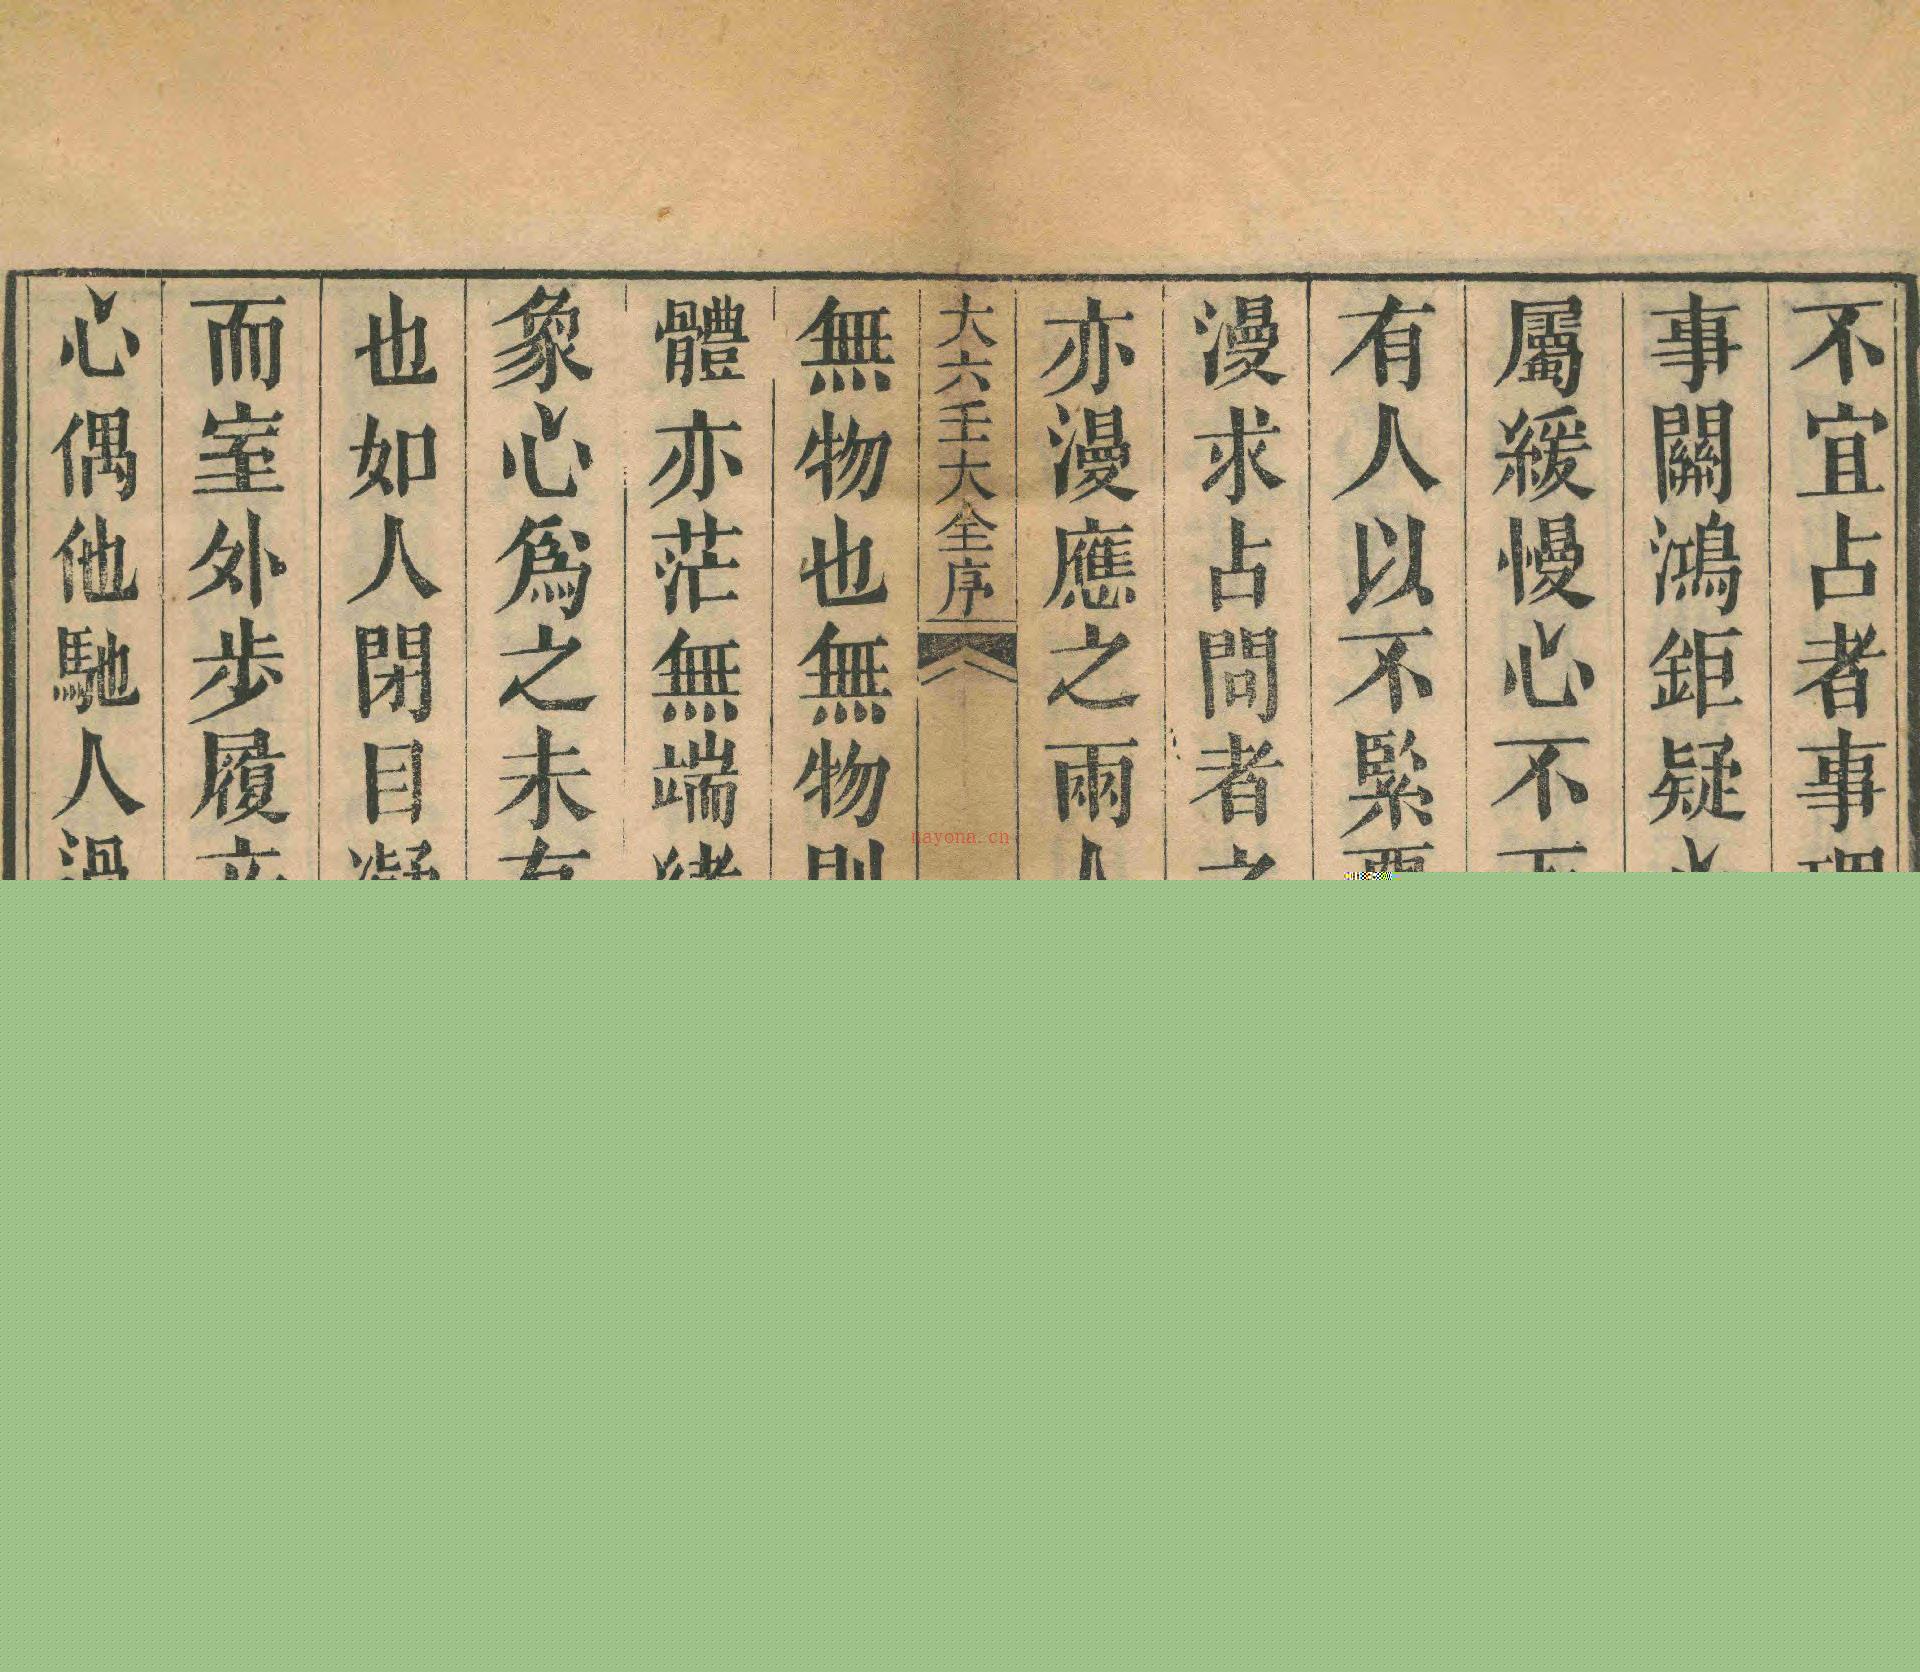 不宜占者事理
事關鴻鉅疑心
屬緩慢心不
有人以不緊要
漫求占問者
亦漫應之兩人
大六壬大全序
無物也無物則
體亦茫無端緒
象心爲之未有
也如人閉目凝
而室外步履
心偶他馳人過
nayona.cn